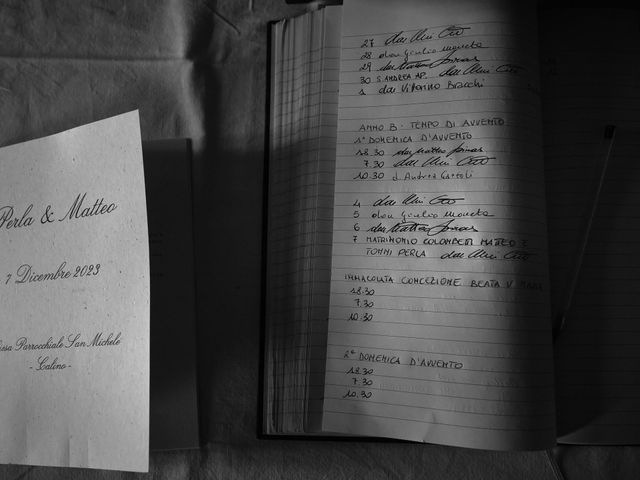 Perla & Matteo
7 Dicembre 2023
Parrocchiale San Michele
- Calino -
27 don
28 don Giulio Moneta
29 don Matteo
30 S. ANDREA AP. don
1 don Vittorino Bracchi
ANNO B - TEMPO DI AVVENTO
1ª DOMENICA D'AVVENTO
18.30 don Matteo
7.30 don
10.30 d. Andrea
4 don
5 don Giulio Moneta
6 don Matteo
7 MATRIMONIO COLOMBETTI MATTEO E
TONNI PERLA don
IMMACOLATA CONCEZIONE BEATA V. MARIA
18.30
7.30
10.30
2ª DOMENICA D'AVVENTO
18.30
7.30
10.30